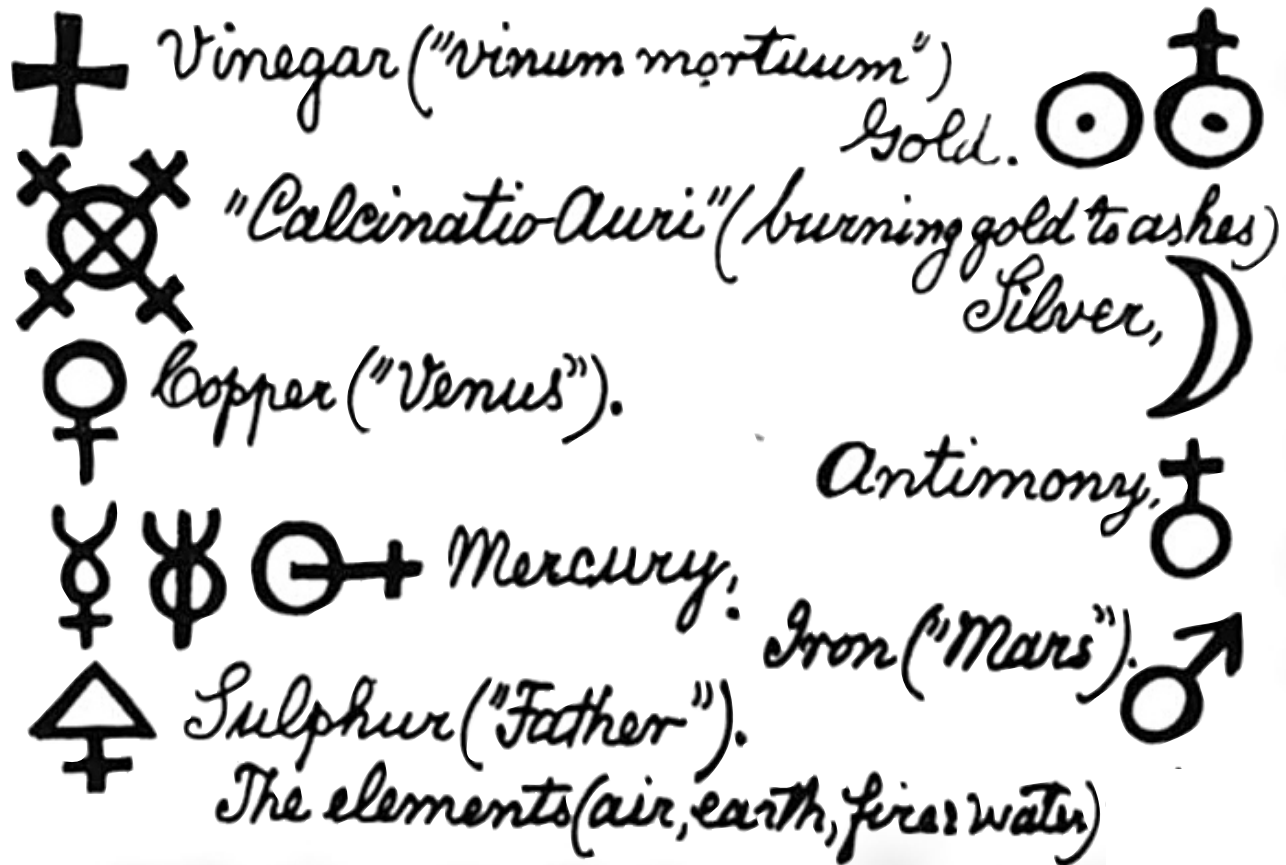 Vinegar ("vinum mortuum")
Gold.
"Calcinatio Auri" (burning gold to ashes)
Silver,
Copper ("Venus").
Antimony,
Mercury,.
Iron ("Mars").
Sulphur ("Father").
The elements (air, earth, fire & water)